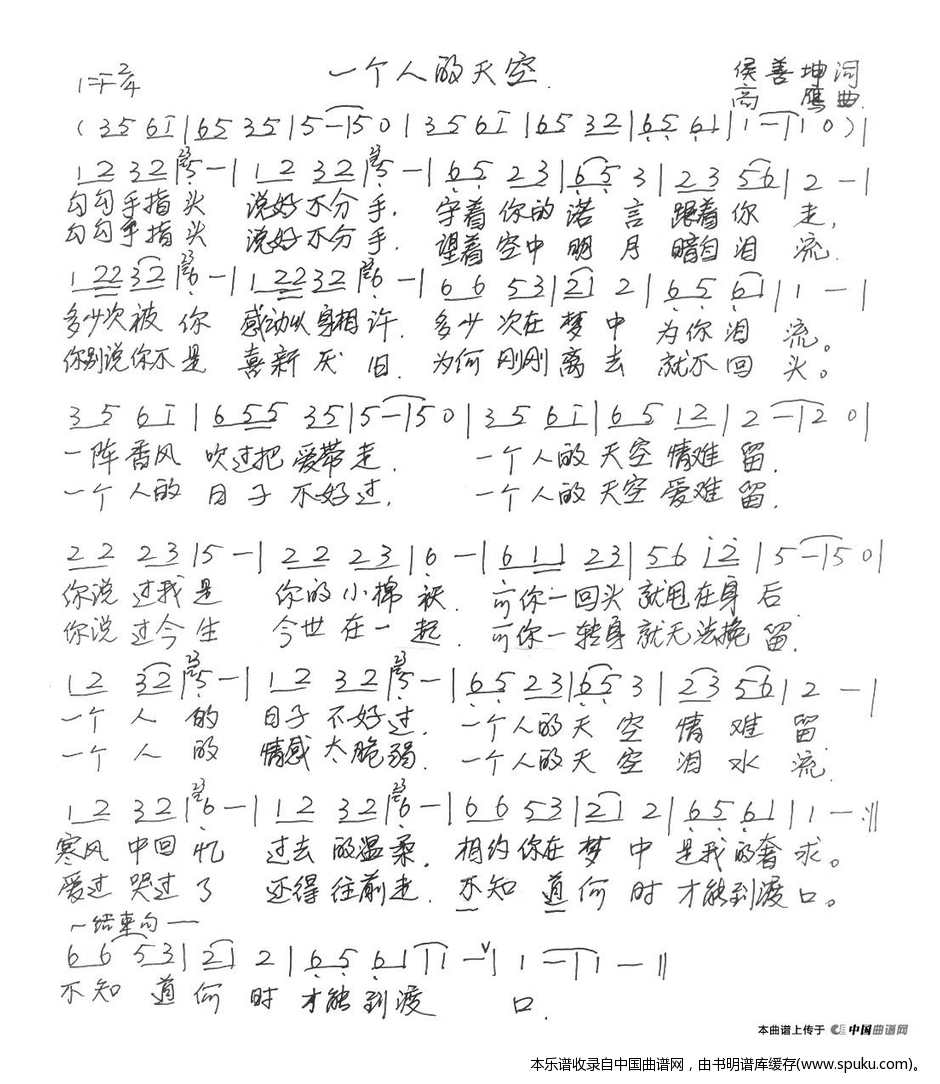 一个人的天空
1=F 2/4
侯善坤词
高鹰曲
(3 5 6 i | 6 5 3 5 | 5 - | 5 0 | 3 5 6 i | 6 5 3 2 | 6 5 6 1 | 1 - | 1 0 ) |
1 2 3 2 | 5 - | 1 2 3 2 | 5 - | 6 5 2 3 | 6 5 3 | 2 3 5 6 | 2 - |
勾勾手指头 说好不分手. 守着你的诺言跟着你走,
勾勾手指头 说好不分手. 望着空中明月暗自泪流.
1 2 2 3 2 | 6 - | 1 2 2 3 2 | 6 - | 6 6 5 3 | 2 1 2 | 6 5 6 1 | 1 - |
多少次被你 感动以身相许. 多少次在梦中为你泪流。
你别说你不是喜新厌旧. 为何刚刚离去就不回头。
3 5 6 i | 6 5 5 3 5 | 5 - | 5 0 | 3 5 6 i | 6 5 1 2 | 2 - | 2 0 |
一阵香风吹过把爱带走. 一个人的天空情难留.
一个人的日子不好过. 一个人的天空爱难留.
2 2 2 3 | 5 - | 2 2 2 3 | 6 - | 6 1 1 2 3 | 5 6 i 2 | 5 - | 5 0 |
你说过我是 你的小棉袄. 可你一回头就甩在身后.
你说过今生 今世在一起. 可你一转身就无法挽留.
1 2 3 2 | 5 - | 1 2 3 2 | 5 - | 6 5 2 3 | 6 5 3 | 2 3 5 6 | 2 - |
一个人的 日子不好过. 一个人的天空情难留.
一个人的 情感太脆弱. 一个人的天空泪水流.
1 2 3 2 | 6 - | 1 2 3 2 | 6 - | 6 6 5 3 | 2 1 2 | 6 5 6 1 | 1 - :||
寒风中回忆 过去的温柔. 相约你在梦中是我的奢求。
爱过哭过了 还得往前走. 不知道何时才能到渡口。
~结束句—
6 6 5 3 | 2 1 2 | 6 5 6 1 | 1 - V | 1 - | 1 - ||
不知道何时才能到渡口.
本曲谱上传于 中国曲谱网
本乐谱收录自中国曲谱网，由书明谱库缓存(www.spuku.com)。